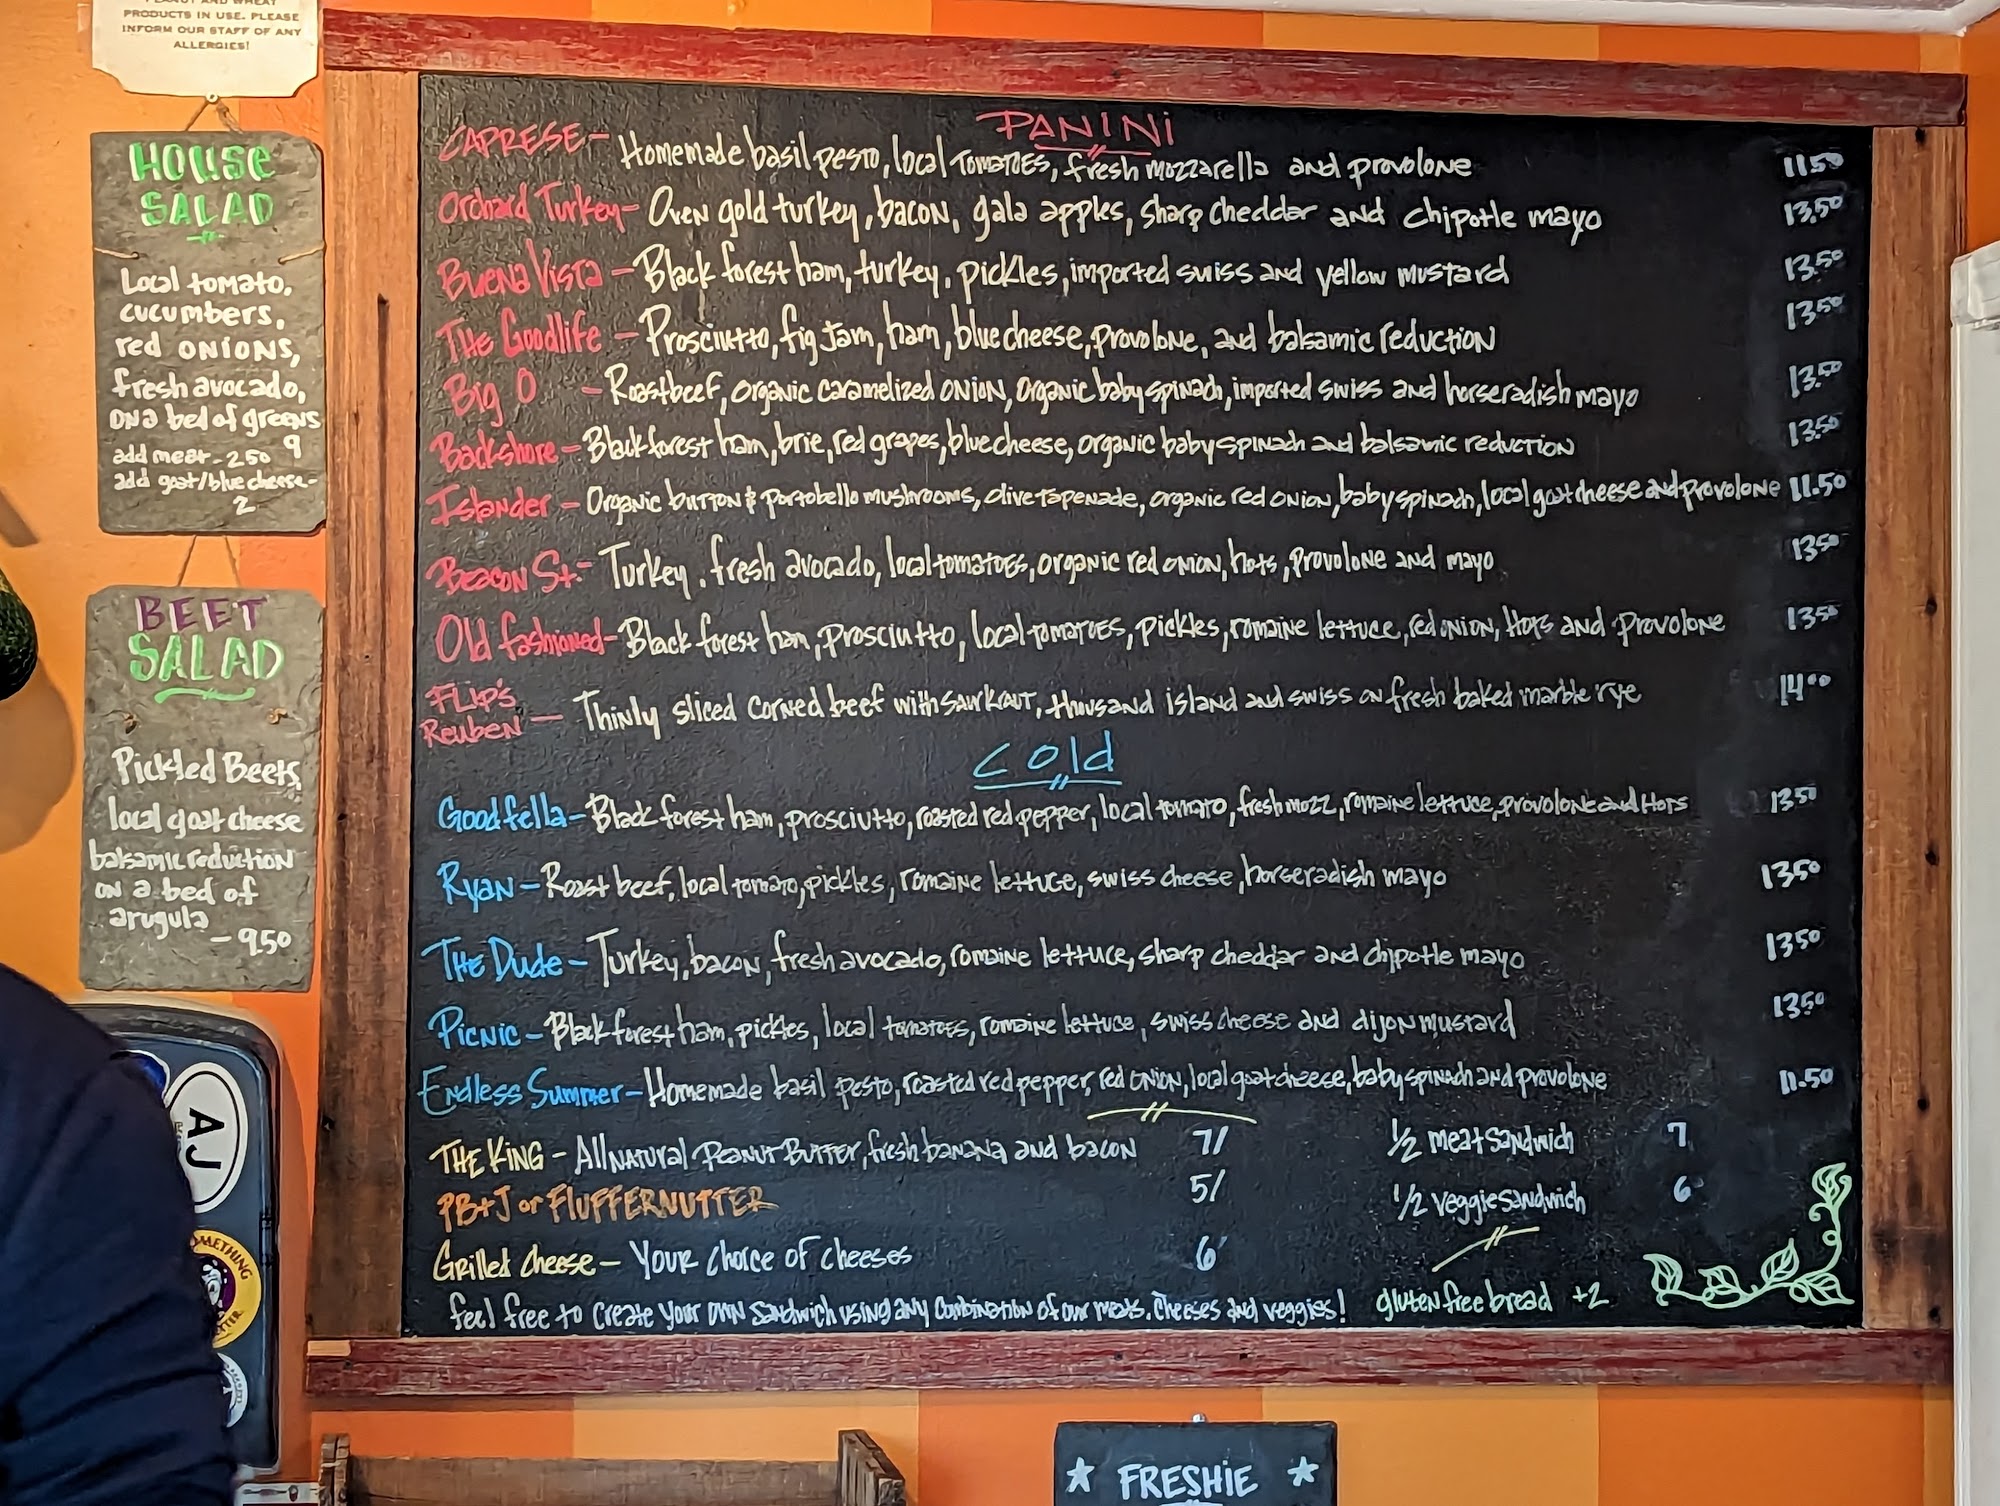 PRODUCTS IN USE. PLEASE
INFORM OUR STAFF OF ANY
ALLERGIES!
HOUSE
SALAD
Local tomato,
cucumbers,
red onions,
fresh avocado,
on a bed of greens
9
add meat - 2.50
add goat/blue cheese -
2
BEET
SALAD
Pickled Beets,
local goat cheese
balsamic reduction
on a bed of
arugula
- 9.50
PANINI
CAPRESE - Homemade basil pesto, local tomatoes, fresh mozzarella and provolone 11.50
Orchard Turkey - Oven gold turkey, bacon, gala apples, sharp cheddar and chipotle mayo 13.50
Buena Vista - Black forest ham, turkey, pickles, imported swiss and yellow mustard 13.50
The Goodlife - Prosciutto, fig jam, ham, blue cheese, provolone, and balsamic reduction 13.50
Big O - Roast beef, organic caramelized onion, organic baby spinach, imported swiss and horseradish mayo 13.50
Backshore - Black forest ham, brie, red grapes, blue cheese, organic baby spinach and balsamic reduction 13.50
Islander - Organic button & portobello mushrooms, olive tapenade, organic red onion, baby spinach, local goat cheese and provolone 11.50
Beacon St. - Turkey, fresh avocado, local tomatoes, organic red onion, hots, provolone and mayo 13.50
Old fashioned - Black forest ham, prosciutto, local tomatoes, pickles, romaine lettuce, red onion, hots and provolone 13.50
Flip's
Reuben - Thinly sliced corned beef with sawrkraut, thousand island and swiss on fresh baked marble rye 14.00
Cold
Goodfella - Black forest ham, prosciutto, roasted red pepper, local tomato, fresh mozz, romaine lettuce, provolone and hots 13.50
Ryan - Roast beef, local tomato, pickles, romaine lettuce, swiss cheese, horseradish mayo 13.50
The Dude - Turkey, bacon, fresh avocado, romaine lettuce, sharp cheddar and chipotle mayo 13.50
Picnic - Black forest ham, pickles, local tomatoes, romaine lettuce, swiss cheese and dijon mustard 13.50
Endless Summer - Homemade basil pesto, roasted red pepper, red onion, local goat cheese, baby spinach and provolone 11.50
The King - All Natural Peanut Butter, fresh banana and bacon 7/
PB+J or FLUFFERNUTTER 5/
Grilled cheese - Your choice of cheeses 6
feel free to create your own sandwich using any combination of our meats, cheeses and veggies!
1/2 meat sandwich 7
1/2 veggie sandwich 6
gluten free bread +2
AJ
FRESHIE